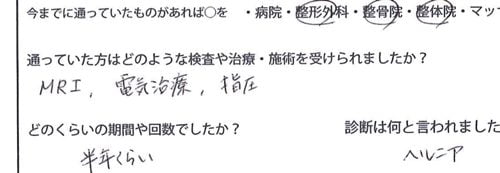 今までに通っていたものがあれば○を ・病院・整形外科・整骨院・整体院・マッ
通っていた方はどのような検査や治療・施術を受けられましたか？
MRI, 電気治療, 指圧
どのくらいの期間や回数でしたか？ 診断は何と言われました
半年くらい ヘルニア